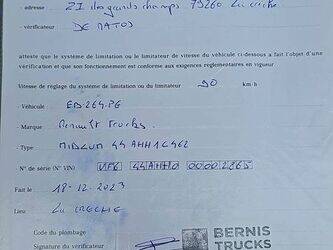 - adresse : ZI des grands champs 79260 La crèche
- vérificateur : DE MATOS
atteste que le système de limitation ou le limitateur de vitesse du véhicule ci-dessous a fait l'objet d'une
vérification et que son fonctionnement est conforme aux exigences réglementaires en vigueur
Vitesse de réglage du système de limitation ou du limitateur : 90 km·h
- Véhicule : ED.264.PG
- Marque : Renault Trucks.
- Type : MIDLUM 44AHH1C462
N° de série (N° VIN) : VF6 44AHH0 0000 2865
Fait le : 18-12-2023
Lieu : LA CRECHE
Code du plombage
Signature du vérificateur
BERNIS
TRUCKS